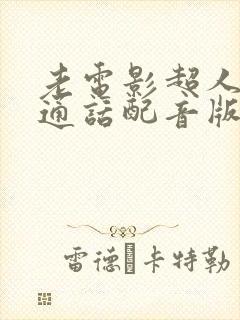 老電影超人
通話配音版
雷德·卡特勒